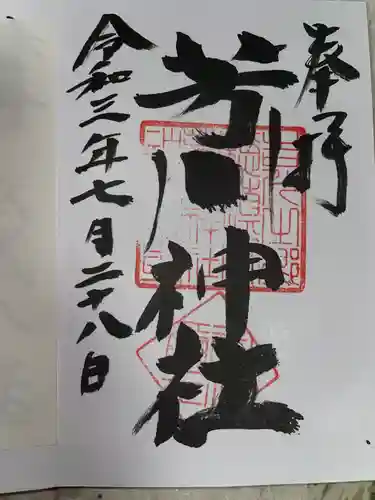 奉拝
芳川神社
令和三年七月二十八日